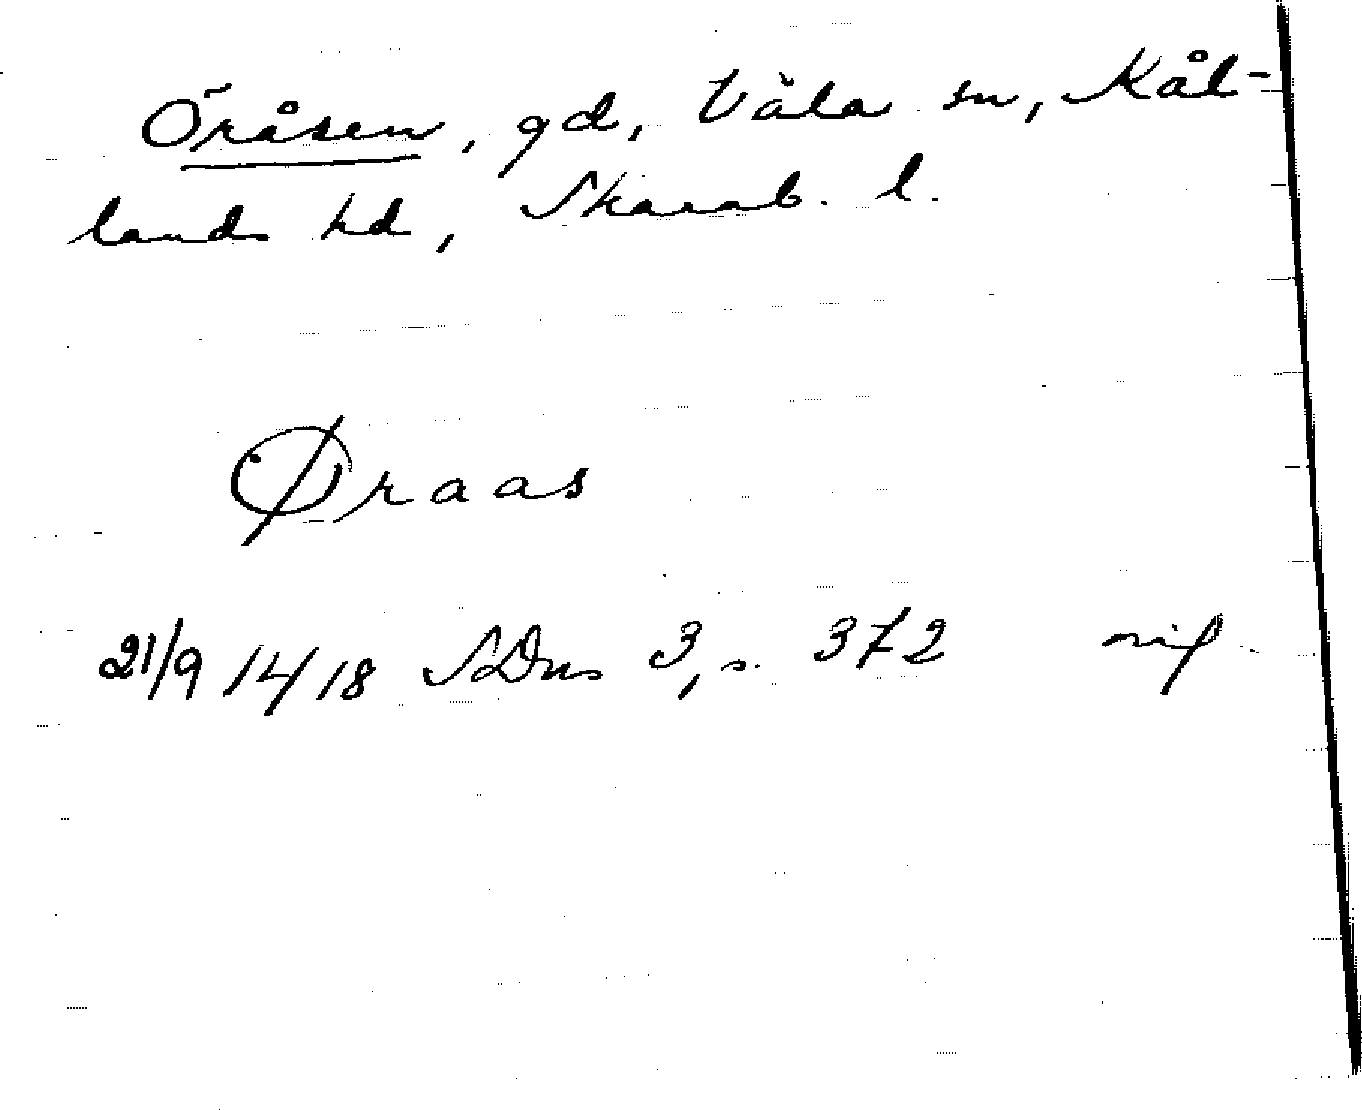 Öråsen, gd, Väla sn, Kål-
lands hd, Skarab. l.
Øraas
21/9 1418 SDns 3, s. 372